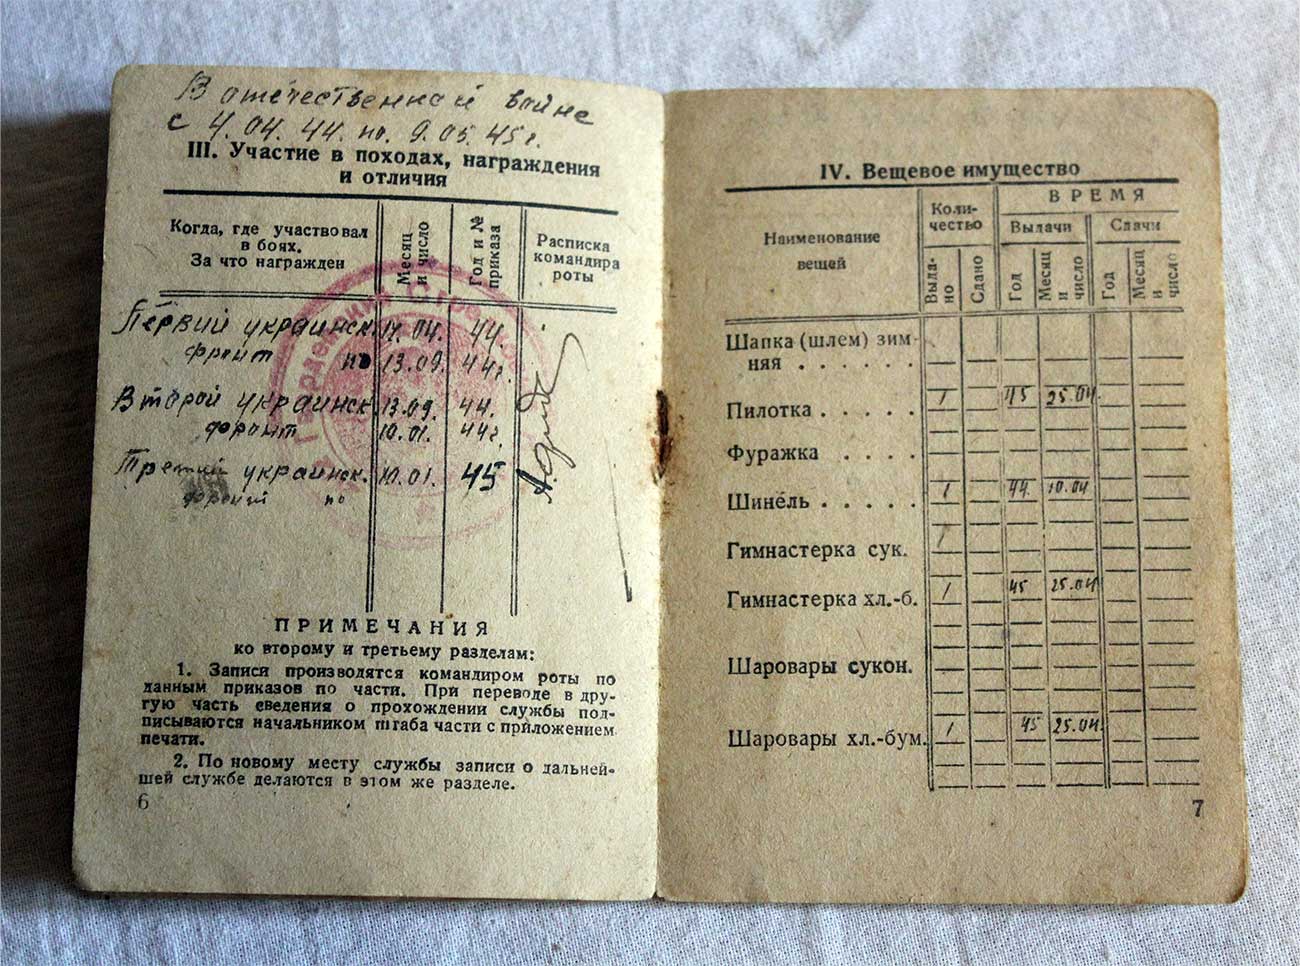 В отечественной войне
с 4.04.44. по 9.05.45г.
III. Участие в походах, награждения
и отличия
Когда, где участвовал
в боях.
За что награжден
Месяц
и число
Год и №
приказа
Расписка
командира
роты
Первий украинск. 14.04. 44.
фронт по 13.09. 44г.
Второй украинск. 13.09. 44.
фронт 10.01. 44г.
Третий украинск. 10.01. 45
фронт по
ПРИМЕЧАНИЯ
ко второму и третьему разделам:
1. Записи производятся командиром роты по
данным приказов по части. При переводе в дру-
гую часть сведения о прохождении службы под-
писываются начальником штаба части с приложением
печати.
2. По новому месту службы записи о дальней-
шей службе делаются в этом же разделе.
6
IV. Вещевое имущество
Наименование
вещей
Коли-
чество
ВРЕМЯ
Выдачи
Сдачи
Выда-
но
Сдано
Год
Месяц
и
число
Год
Месяц
и
число
Шапка (шлем) зим-
няя . . . . . .
Пилотка . . . . . 1 45 25.04
Фуражка . . . .
Шинель . . . . . 1 44. 10.04
Гимнастерка сук. 1
Гимнастерка хл.-б. 1 45 25.04
Шаровары сукон.
Шаровары хл.-бум. 1 45 25.04
7